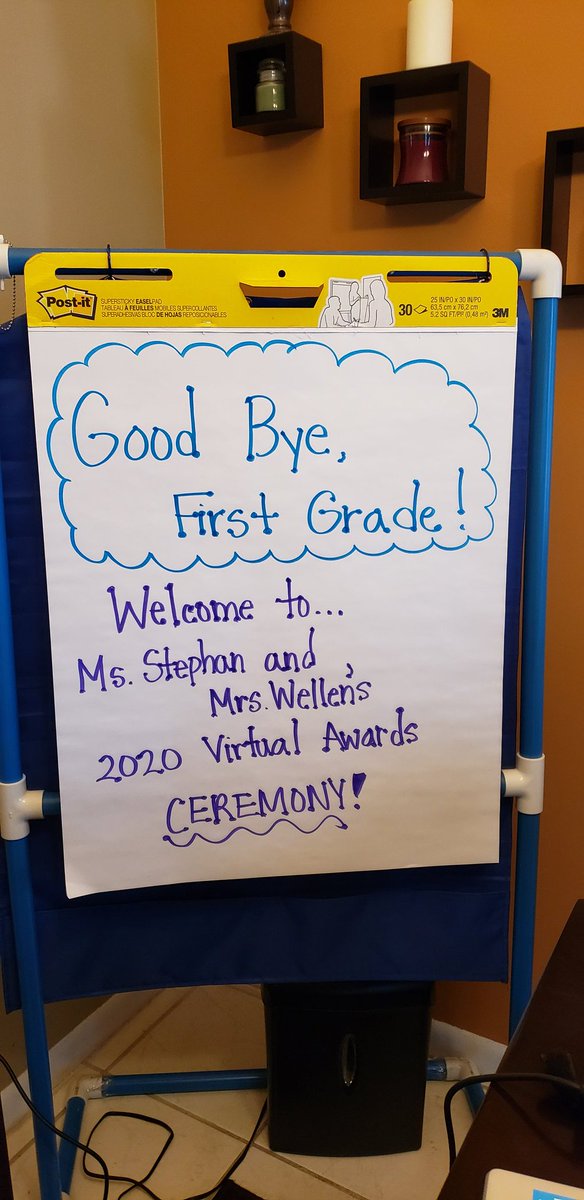 Post-it
SUPERSTICKY EASELPAD
TABLEAU À FEUILLES MOBILES SUPERCOLLANTES
SUPERADHESIVAS BLOC DE HOJAS REPOSICIONABLES
30
25 IN/PO x 30 IN/PO
63,5 cm x 76,2 cm
5.2 SQ FT/PI² (0,48 m²)
3M
Good Bye,
First Grade!
Welcome to...
Ms. Stephan and
Mrs. Wellen's
2020 Virtual Awards
CEREMONY!